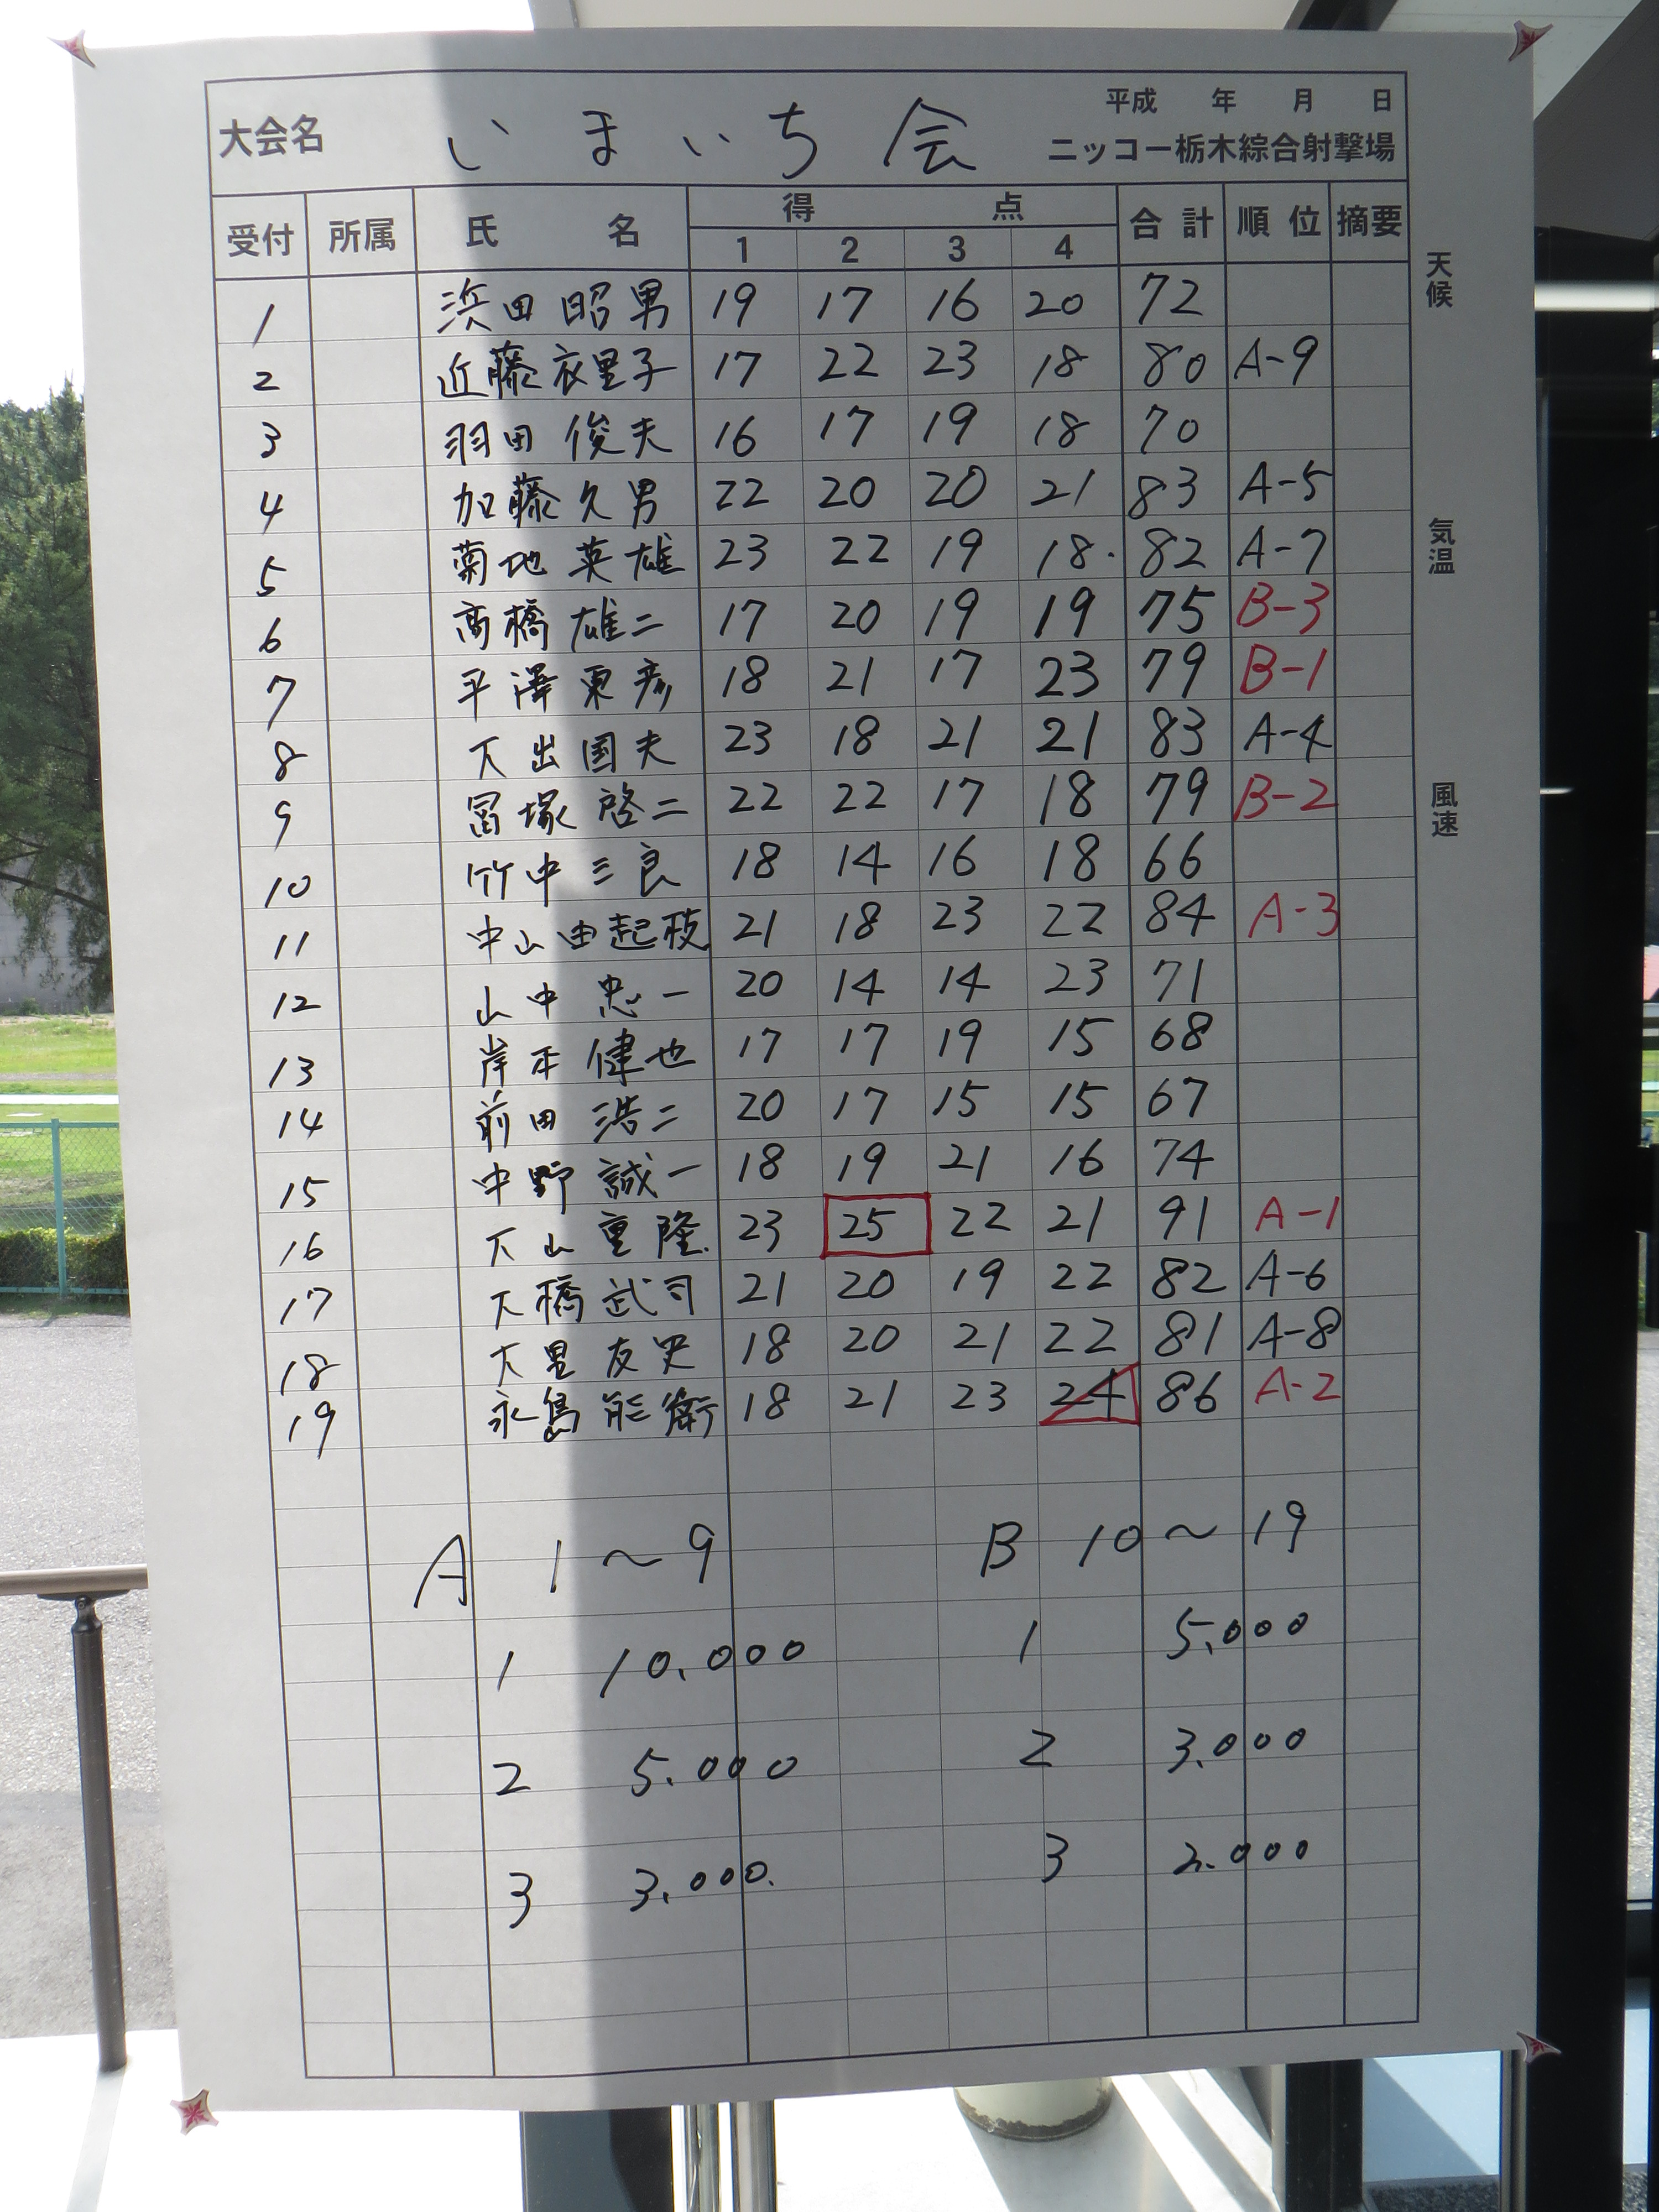 平成 年 月 日
大会名 いまいち会 ニッコー栃木綜合射撃場
受付 所属 氏名 得点 合計 順位 摘要
1 2 3 4
1 浜田昭男 19 17 16 20 72
2 近藤衣里子 17 22 23 18 80 A-9
3 羽田俊夫 16 17 19 18 70
4 加藤久男 22 20 20 21 83 A-5
5 菊地英雄 23 22 19 18. 82 A-7
6 高橋雄二 17 20 19 19 75 B-3
7 平澤東彦 18 21 17 23 79 B-1
8 大出国夫 23 18 21 21 83 A-4
9 冨塚啓二 22 22 17 18 79 B-2
10 竹中三良 18 14 16 18 66
11 中山由起枝 21 18 23 22 84 A-3
12 山中忠一 20 14 14 23 71
13 岸本健也 17 17 19 15 68
14 前田浩二 20 17 15 15 67
15 中野誠一 18 19 21 16 74
16 大山重隆 23 25 22 21 91 A-1
17 大橋武司 21 20 19 22 82 A-6
18 大里友史 18 20 21 22 81 A-8
19 永島能衛 18 21 23 24 86 A-2
A 1〜9 B 10〜19
1 10.000 1 5.000
2 5.000 2 3.000
3 3.000. 3 2.000
天候
気温
風速